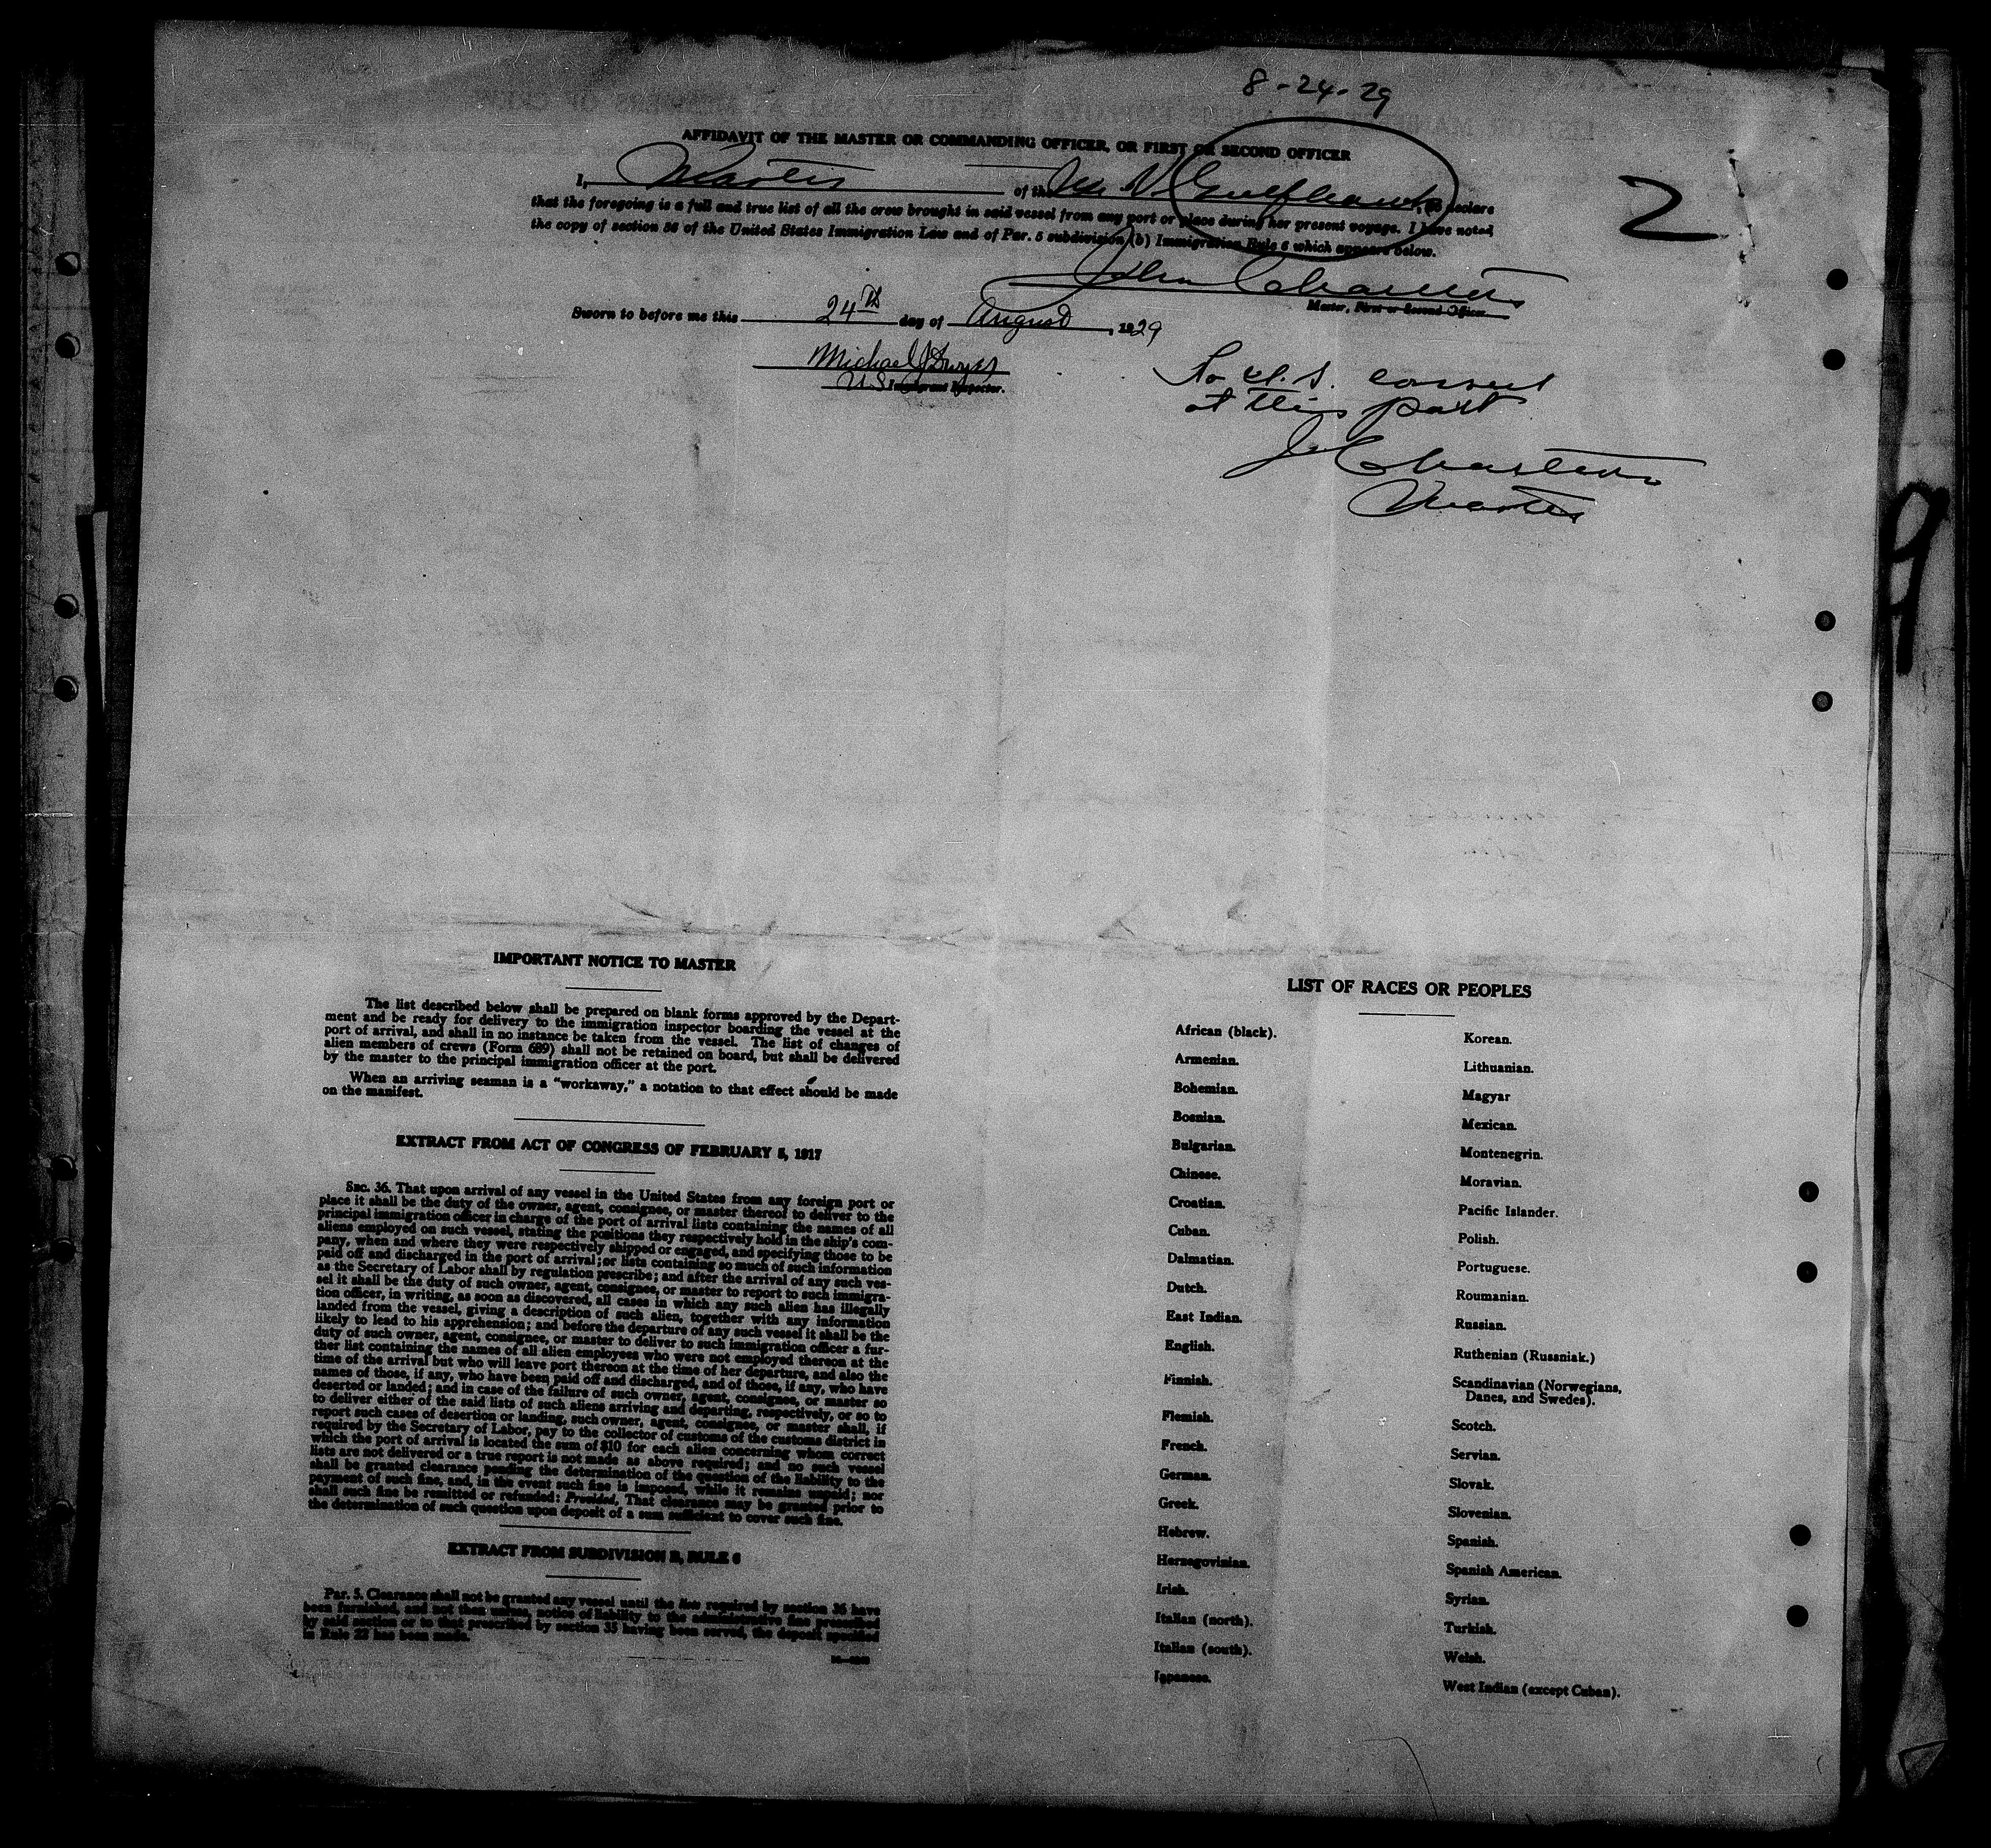 8-24-29
AFFIDAVIT OF THE MASTER OR COMMANDING OFFICER, OR FIRST OR SECOND OFFICER
2
I, Master of the M.V. Gulfhawk, do declare
that the foregoing is a full and true list of all the crew brought in said vessel from any port or place during her present voyage. I have noted
the copy of section 36 of the United States Immigration Law and of Par. 5 subdivision (b) Immigration Rule 6 which appears below.
John
Master, First or Second Officer.
Sworn to before me this 24th day of August, 1929
Michael J
U.S. Immigrant Inspector.
No U.S. consul
at this port
Master
9
IMPORTANT NOTICE TO MASTER
The list described below shall be prepared on blank forms approved by the Depart-
ment and be ready for delivery to the immigration inspector boarding the vessel at the
port of arrival, and shall in no instance be taken from the vessel. The list of changes of
alien members of crews (Form 689) shall not be retained on board, but shall be delivered
by the master to the principal immigration officer at the port.
When an arriving seaman is a "workaway," a notation to that effect should be made
on the manifest.
EXTRACT FROM ACT OF CONGRESS OF FEBRUARY 5, 1917
SEC. 36. That upon arrival of any vessel in the United States from any foreign port or
place it shall be the duty of the owner, agent, consignee, or master thereof to deliver to the
principal immigration officer in charge of the port of arrival lists containing the names of all
aliens employed on such vessel, stating the positions they respectively hold in the ship's com-
pany, when and where they were respectively shipped or engaged, and specifying those to be
paid off and discharged in the port of arrival; or lists containing so much of such information
as the Secretary of Labor shall by regulation prescribe; and after the arrival of any such ves-
sel it shall be the duty of such owner, agent, consignee, or master to report to such immigra-
tion officer, in writing, as soon as discovered, all cases in which any such alien has illegally
landed from the vessel, giving a description of such alien, together with any information
likely to lead to his apprehension; and before the departure of any such vessel it shall be the
duty of such owner, agent, consignee, or master to deliver to such immigration officer a fur-
ther list containing the names of all alien employees who were not employed thereon at the
time of the arrival but who will leave port thereon at the time of her departure, and also the
names of those, if any, who have been paid off and discharged, and of those, if any, who have
deserted or landed; and in case of the failure of such owner, agent, consignee, or master so
to deliver either of the said lists of such aliens arriving and departing, respectively, or so to
report such cases of desertion or landing, such owner, agent, consignee, or master shall, if
required by the Secretary of Labor, pay to the collector of customs of the customs district in
which the port of arrival is located the sum of $10 for each alien concerning whom correct
lists are not delivered or a true report is not made as above required; and no such vessel
shall be granted clearance pending the determination of the question of the liability to the
payment of such fine, and, in the event such fine is imposed, while it remains unpaid; nor
shall such fine be remitted or refunded: Provided, That clearance may be granted prior to
the determination of such question upon deposit of a sum sufficient to cover such fine.
EXTRACT FROM SUBDIVISION B, RULE 6
Par. 5. Clearance shall not be granted any vessel until the lists required by section 36 have
been furnished, and not then unless, notice of liability to the administrative fine prescribed
by said section or to that prescribed by section 35 having been served, the deposit specified
in Rule 22 has been made.
LIST OF RACES OR PEOPLES
African (black).
Armenian.
Bohemian.
Bosnian.
Bulgarian.
Chinese.
Croatian.
Cuban.
Dalmatian.
Dutch.
East Indian.
English.
Finnish.
Flemish.
French.
German.
Greek.
Hebrew.
Herzegovinian.
Irish.
Italian (north).
Italian (south).
Japanese.
Korean.
Lithuanian.
Magyar
Mexican.
Montenegrin.
Moravian.
Pacific Islander.
Polish.
Portuguese.
Roumanian.
Russian.
Ruthenian (Russniak.)
Scandinavian (Norwegians,
Danes, and Swedes).
Scotch.
Servian.
Slovak.
Slovenian.
Spanish.
Spanish American.
Syrian.
Turkish.
Welsh.
West Indian (except Cuban).